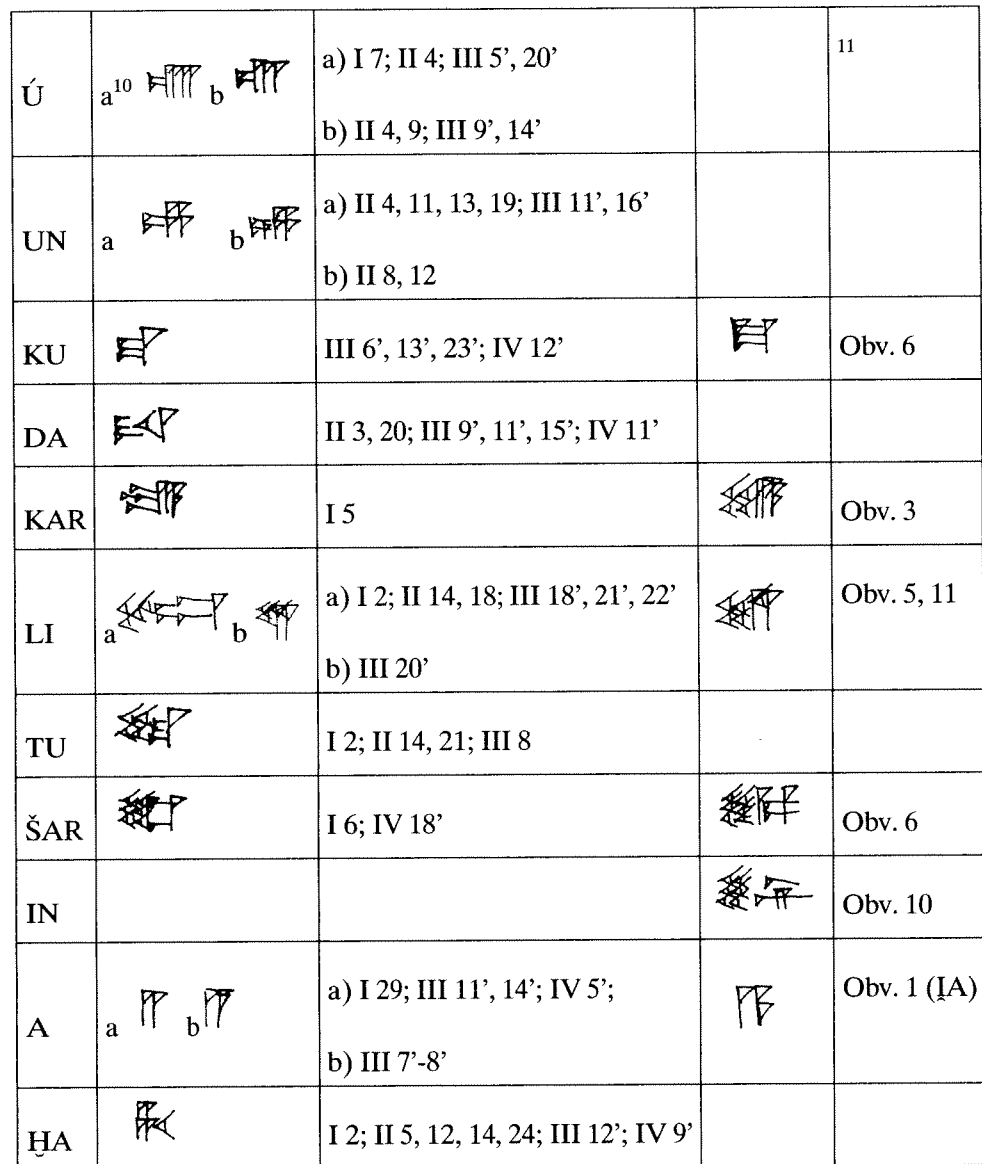 Ú a¹⁰ b a) I 7; II 4; III 5’, 20’ ¹¹
b) II 4, 9; III 9’, 14’
UN a b a) II 4, 11, 13, 19; III 11’, 16’
b) II 8, 12
KU III 6’, 13’, 23’; IV 12’ Obv. 6
DA II 3, 20; III 9’, 11’, 15’; IV 11’
KAR I 5 Obv. 3
LI a b a) I 2; II 14, 18; III 18’, 21’, 22’ Obv. 5, 11
b) III 20’
TU I 2; II 14, 21; III 8
ŠAR I 6; IV 18’ Obv. 6
IN Obv. 10
A a b a) I 29; III 11’, 14’; IV 5’; Obv. 1 (I̯A)
b) III 7'-8’
ḪA I 2; II 5, 12, 14, 24; III 12’; IV 9’